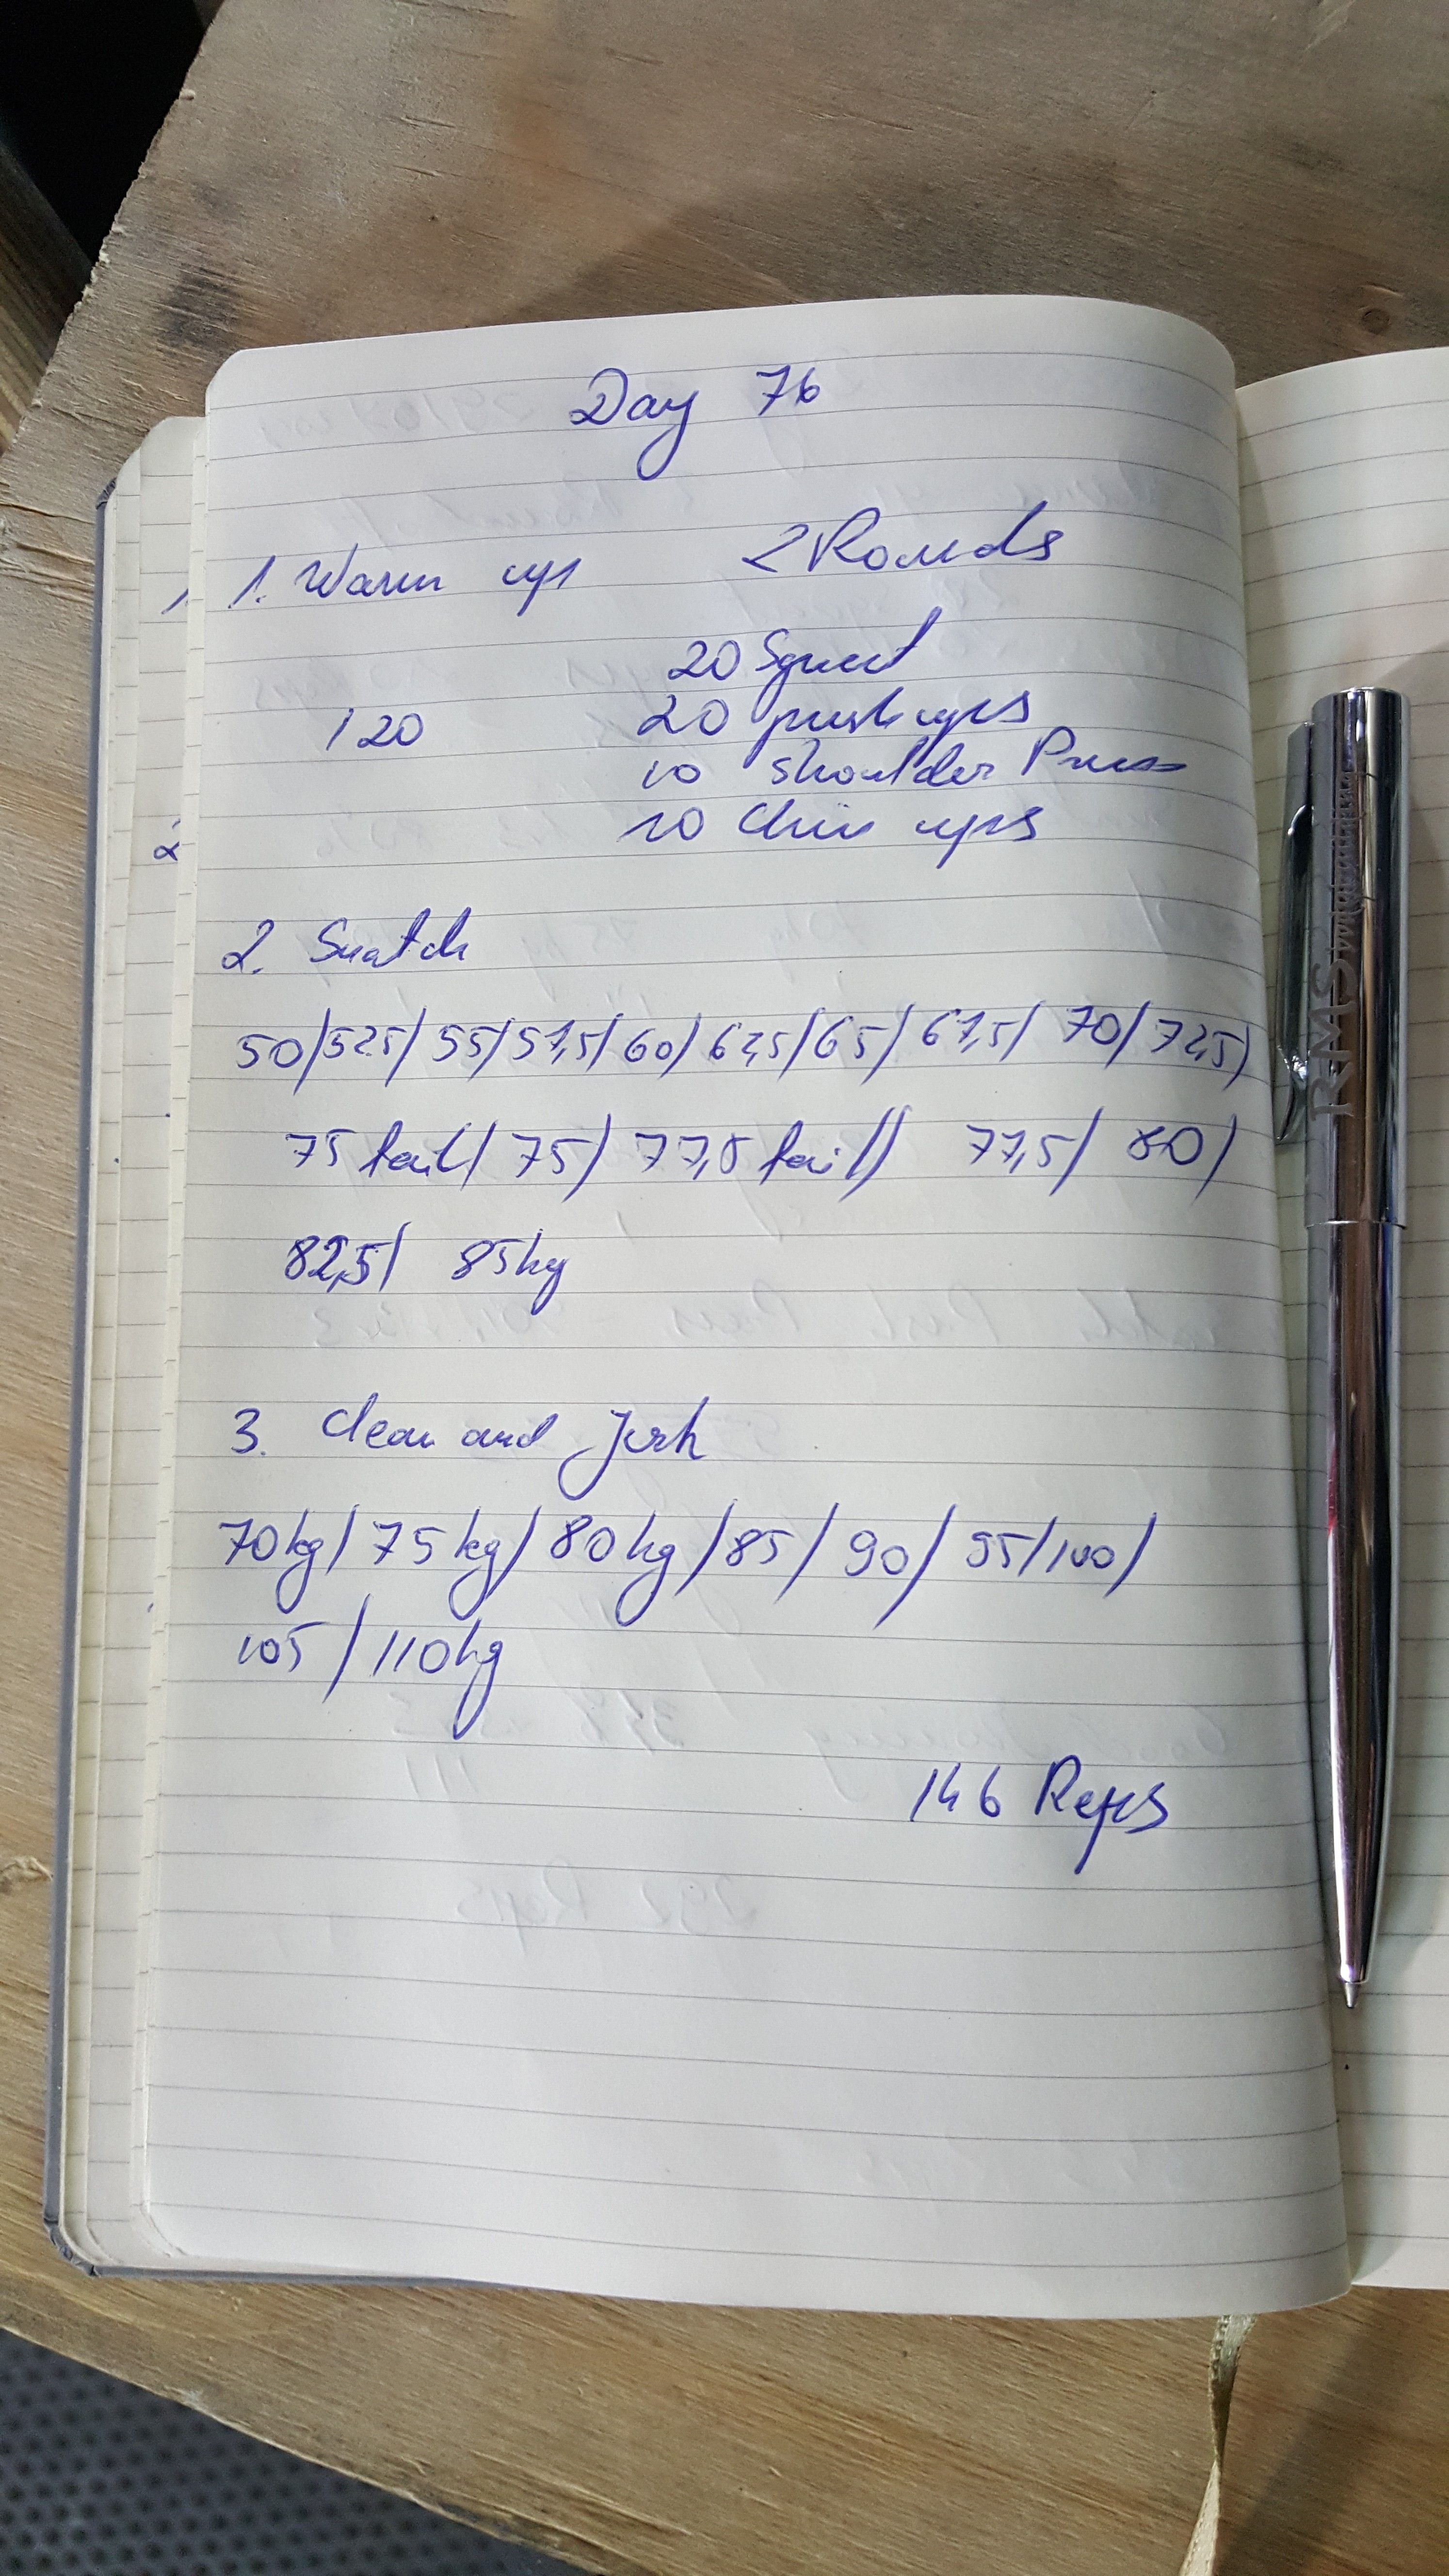 Day 76
1. Warm up 2 Rounds
20 Squat
120 20 push ups
10 shoulder Press
10 Chin ups
2. Snatch
50/52,5/55/57,5/60/62,5/65/67,5/70/72,5/
75 fail/75/77,5 fail/ 77,5/80/
82,5/ 85kg
3. Clean and Jerk
70kg/75kg/80kg/85/90/95/100/
105/110kg
146 Reps
RMS